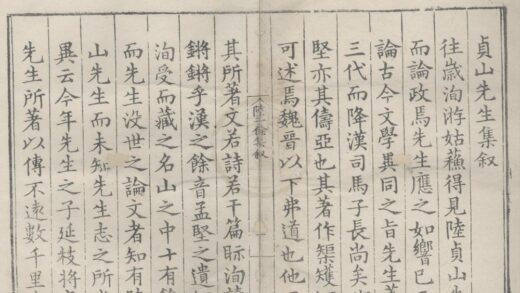 貞山先生集叙
往歲洵游姑蘓得見陸貞山
而論政焉先生應之如響已
論古今文學異同之旨先生
三代而降漢司馬子長尚矣
堅亦其儔亞也其著作榘矱
可述焉魏晉以下弗道也他
陸 集叙
其所著文若詩若干篇眎洵
鏘鏘乎漢之餘音孟堅之遺
洵受而藏之名山之中十有
而先生没世之論文者知有
山先生而未知先生志之所
異云今年先生之子延枝將
先生所著以傳不遠數千里